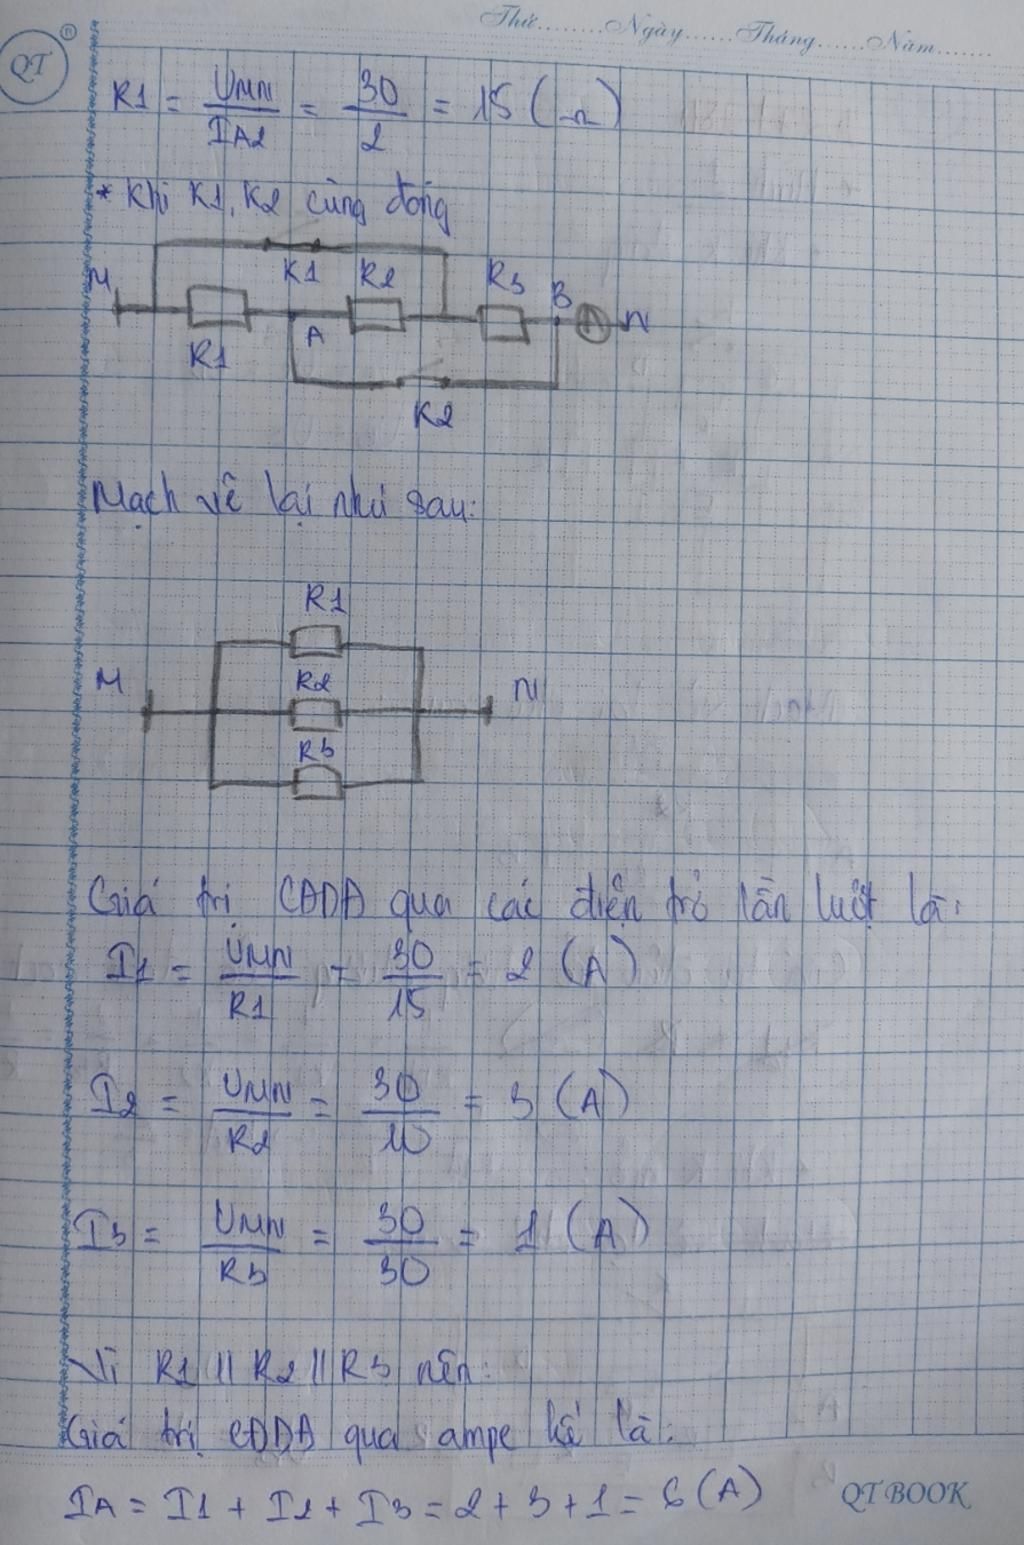 Thứ........Ngày......Tháng......Năm.......
QT
R1 = UMN/IA2 = 30/2 = 15 (Ω)
* Khi K1, K2 cùng đóng
M R1 K1 A R2 K2 R3 B A N
Mạch vẽ lại như sau:
R1
M R2 N
R3
Giá trị CĐDĐ qua các điện trở lần lượt là:
I1 = UMN/R1 = 30/15 = 2 (A)
I2 = UMN/R2 = 30/10 = 3 (A)
I3 = UMN/R3 = 30/30 = 1 (A)
Vì R1 // R2 // R3 nên:
Giá trị CĐDĐ qua ampe kế là:
IA = I1 + I2 + I3 = 2 + 3 + 1 = 6 (A)
QT BOOK